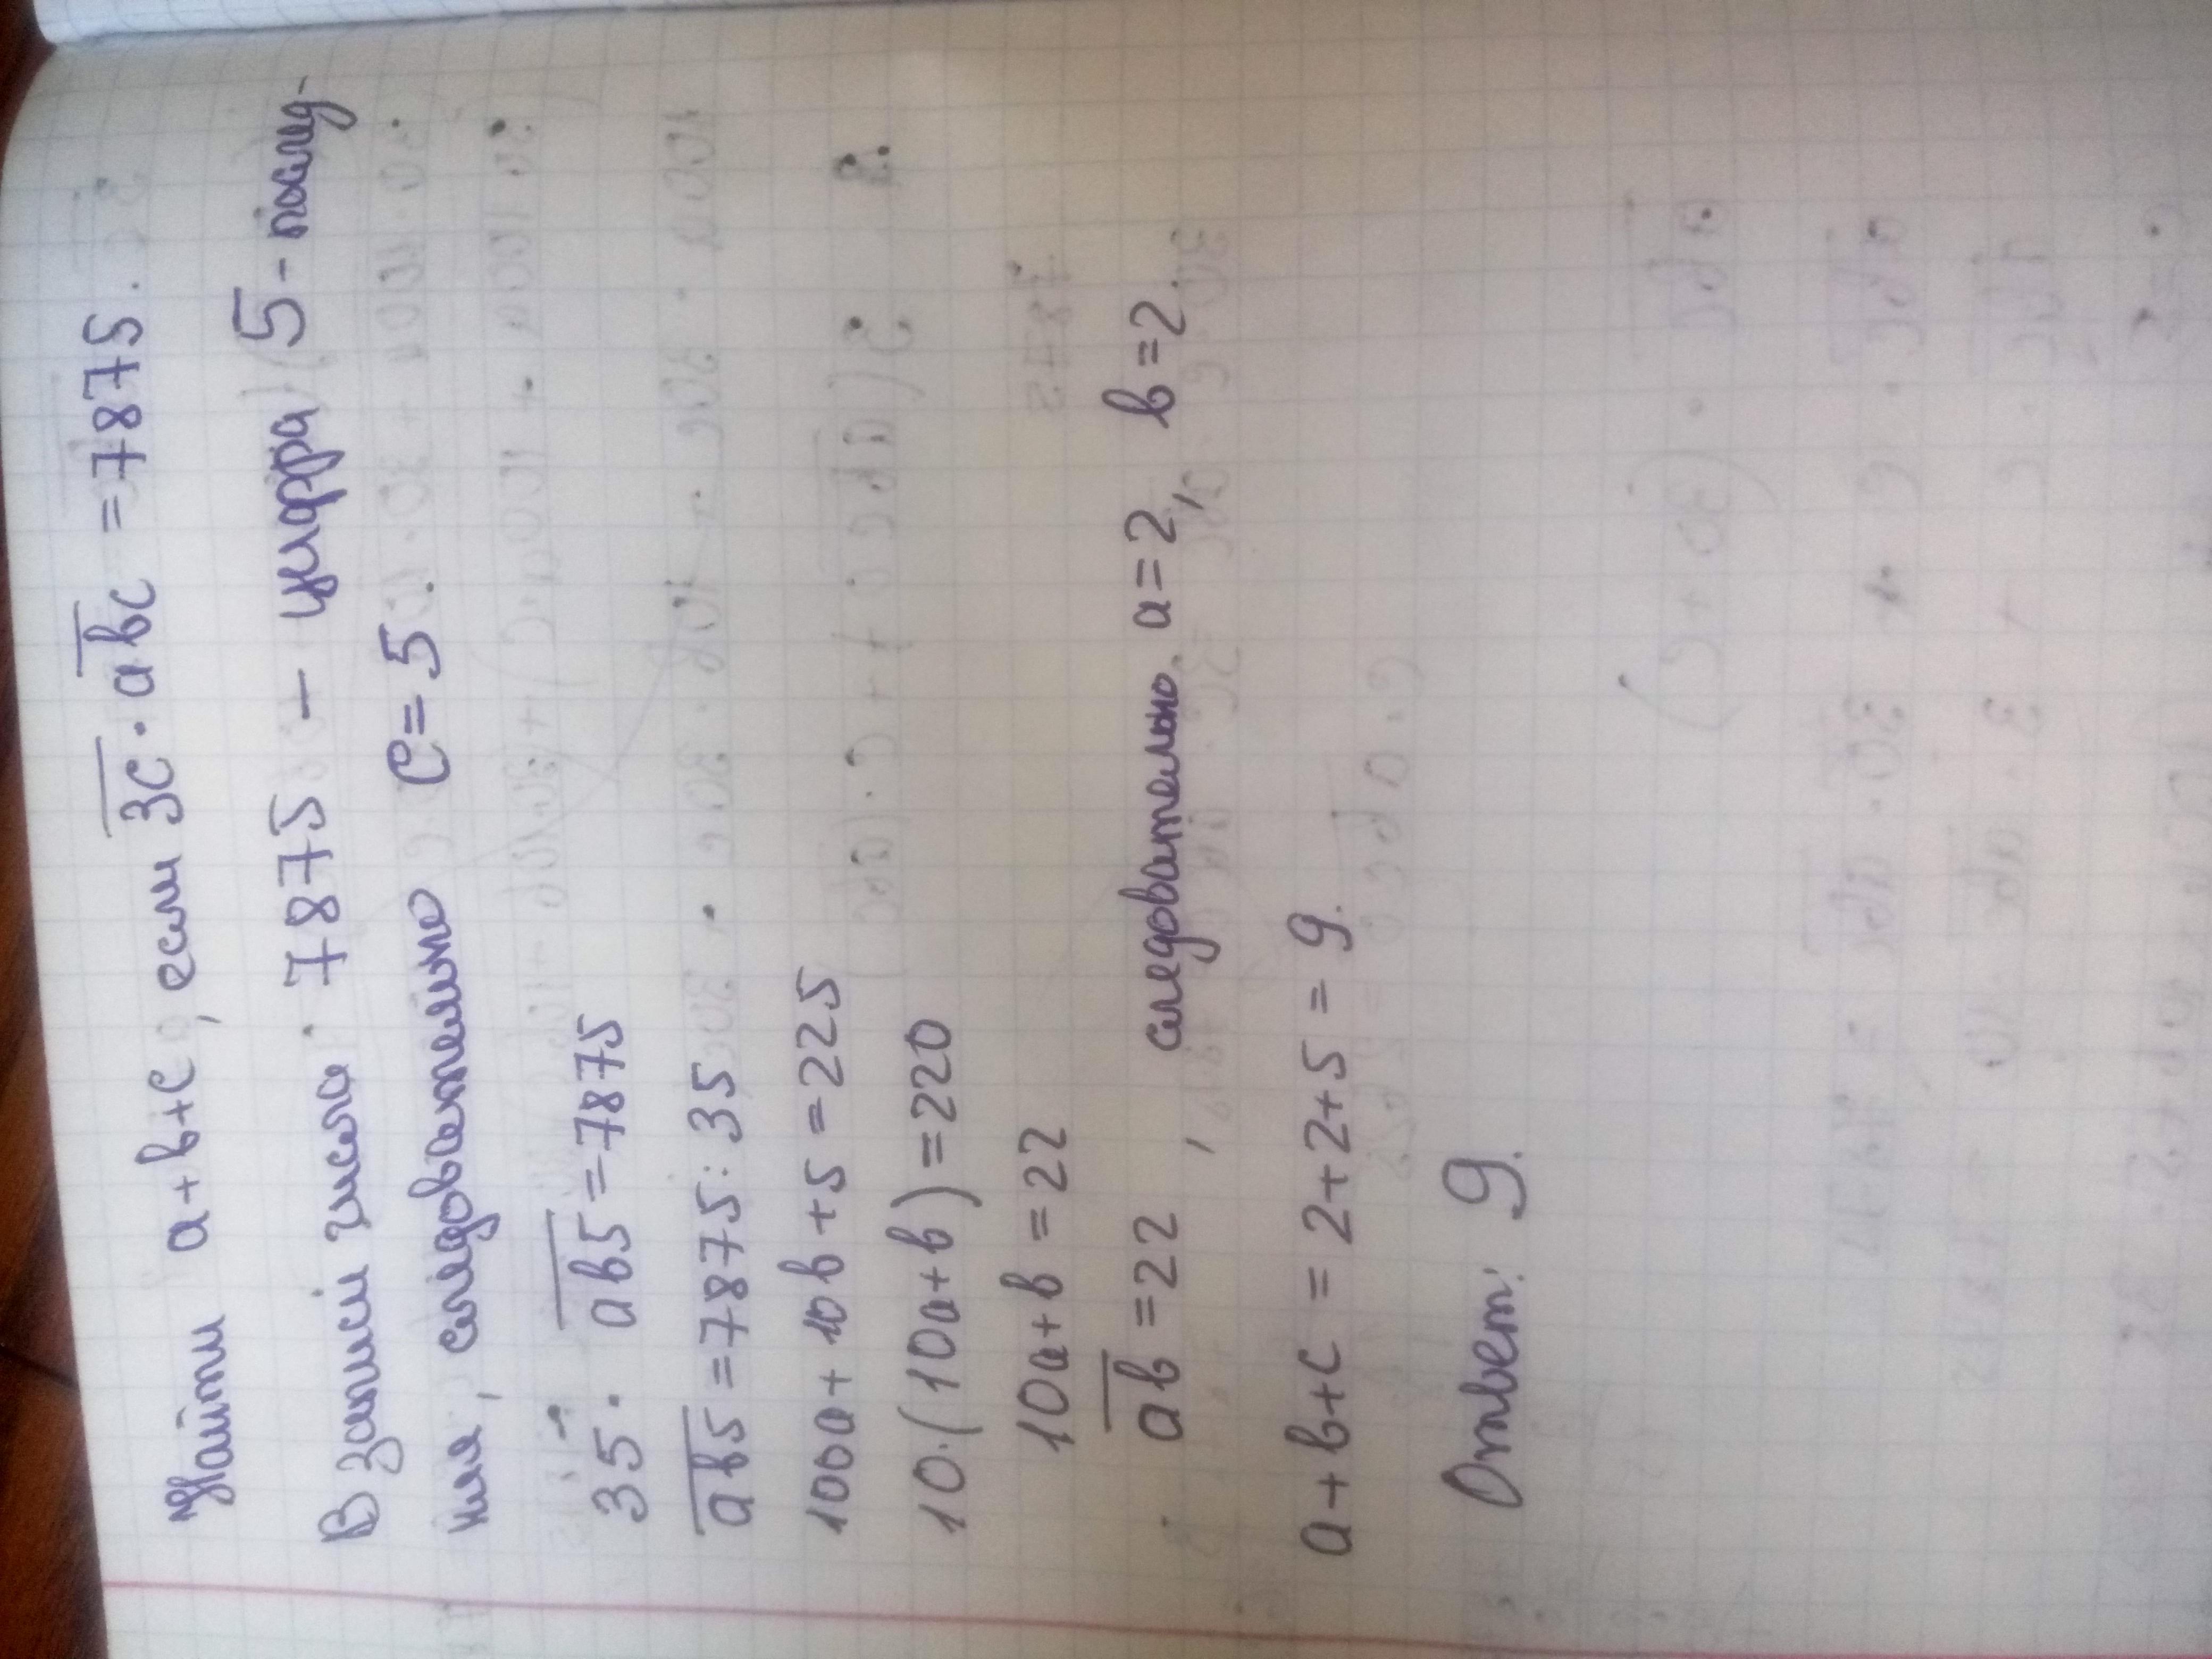 Найти a+b+c, если 3c · abc = 7875.
В записи числа 7875 – цифра 5 - послед-
няя, следовательно c = 5.
35 · ab5 = 7875
ab5 = 7875 : 35
100a + 10b + 5 = 225
10·(10a+b) = 220
10a + b = 22
ab = 22, следовательно a = 2, b = 2.
a + b + c = 2 + 2 + 5 = 9.
Ответ: 9.